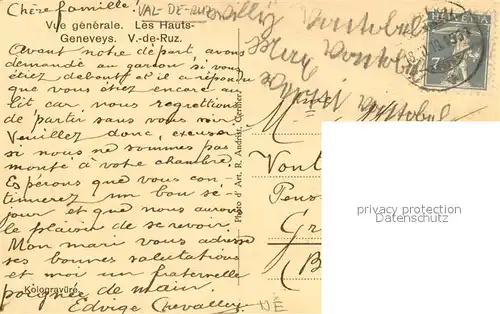 Chère famille.
VAL-DE-RUZ
Willy Vontobel
Vue générale. Les Hauts-
Geneveys. V.-de-Ruz.
Avant notre départ avons
demandé au garçon si vous
étiez debout et il a répondu
que vous étiez encore au
lit car, nous regrettions
de partir sans vous voir
Veuillez donc, excuser
si nous ne sommes pas
monté à votre chambre.
Espérons que vous con-
tinuerez un bon sé-
jour et que nous aurons
le plaisir de se revoir.
Mon mari vous adresse
ses bonnes salutations
et moi un fraternelle
poignée de main.
Edvige Chevalley
Kologravüre.
Photo d'Art, R. Andrist, Cernier.
Vontobel
Vontobel
HELVETIA
7
Vont
Pens
Gr
(B
privacy protection
Datenschutz
NE